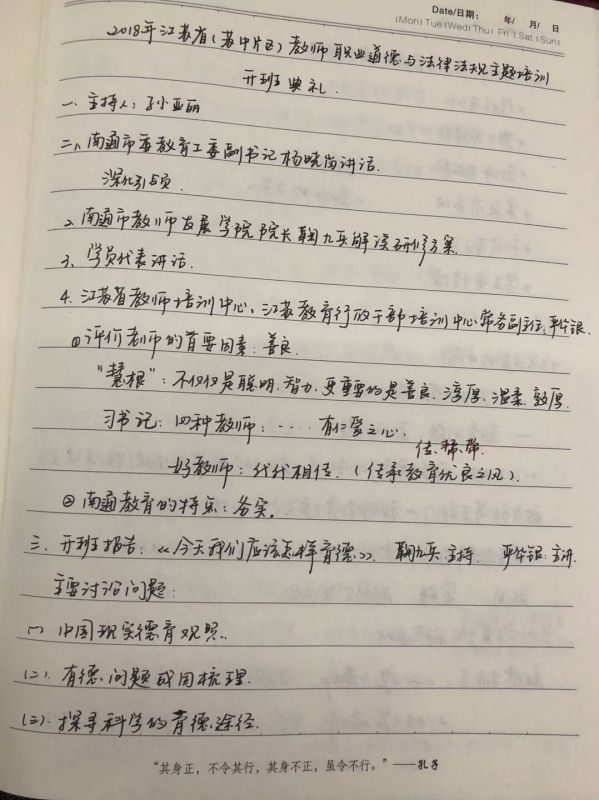 Date/日期: 年/ 月/ 日
Mon Tue Wed Thu Fri Sat Sun
2018年江苏省(苏中片区)教师职业道德与法律法规主题培训
开班典礼.
一、主持人:孙亚丽
二、南通市委教育工委副书记杨晓岗讲话.
深化引占领
2、南通市教师发展学院院长鞠九兵解读研修方案.
3、学员代表讲话.
4. 江苏省教师培训中心、江苏教育行政干部培训中心常务副主任:严华银.
①评价老师的首要因素:善良.
"慧根":不仅仅是聪明.智力.更重要的是善良.淳厚.温柔.敦厚.
习书记:四种教师:....有仁爱之心.
传.帮.带.
好教师:代代相传.(传承教育优良之风).
②南通教育的特点:务实.
三、开班报告:《今天我们应该怎样育德》. 鞠九兵.主持. 严华银:主讲.
主要讨论问题:
(一)中国现实德育观照.
(二).育德问题成因梳理.
(三).探寻科学的育德途径.
"其身正,不令其行,其身不正,虽令不行。"——孔子